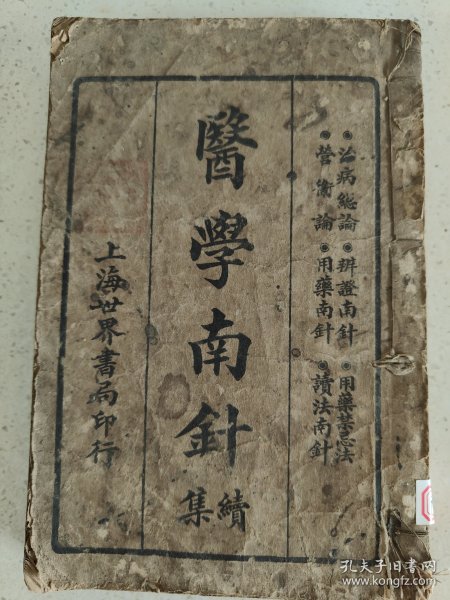 治病總論 辨證南針 用藥禁忌法
營衞論 用藥南針 讀法南針
醫學南針
續集
上海世界書局印行
孔夫子旧书网
www.kongfz.com